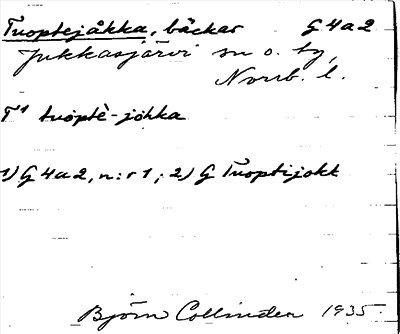 Tuoptejåkka, bäckar G 4 a 2
Jukkasjärvi sn o. tg,
Norrb. l.
T¹ tuoptè-johka
1) G 4 a 2, n:r 1; 2) G Tuoptijokk
Björn Collinder 1935